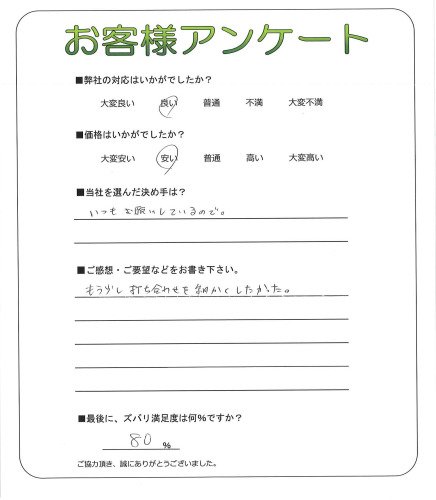 お客様アンケート
■弊社の対応はいかがでしたか?
大変良い 良い 普通 不満 大変不満
■価格はいかがでしたか?
大変安い 安い 普通 高い 大変高い
■当社を選んだ決め手は?
いつもお願いしているので。
■ご感想・ご要望などをお書き下さい。
もう少し打ち合わせを細かくしたかった。
■最後に、ズバリ満足度は何%ですか?
80 %
ご協力頂き、誠にありがとうございました。